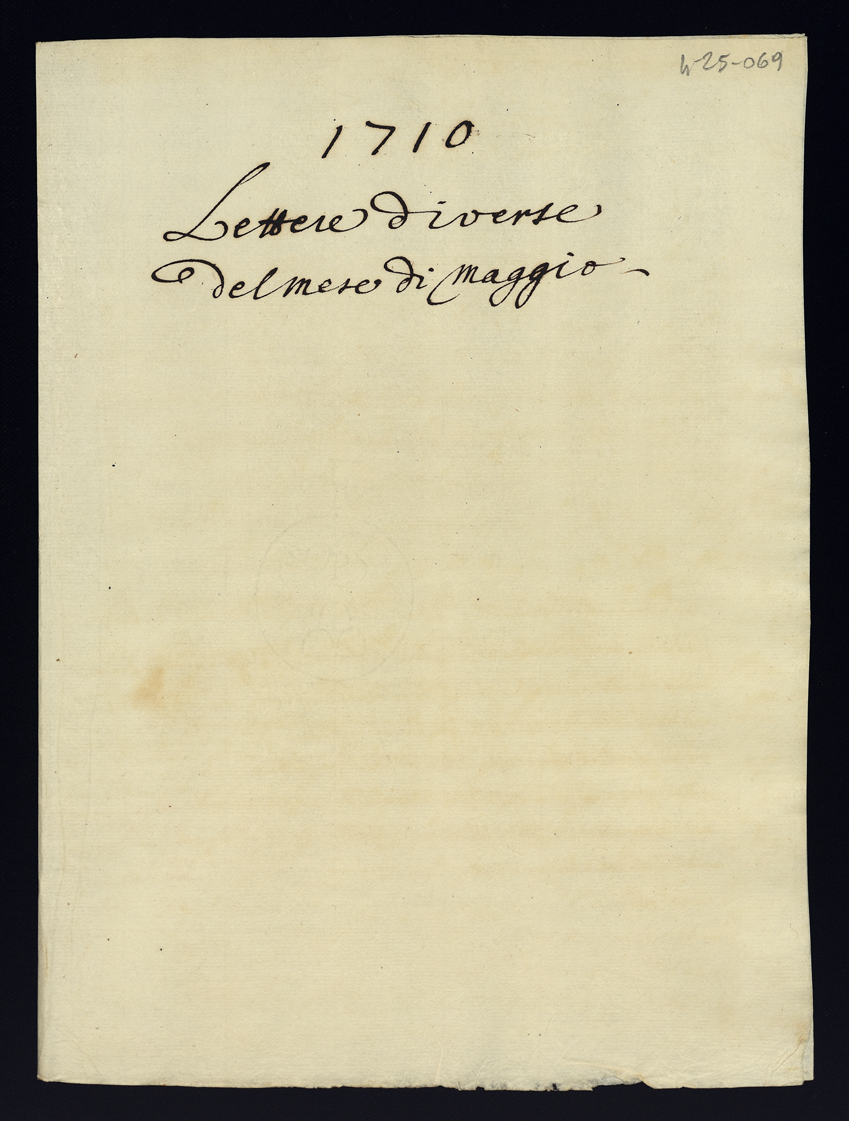 4-25-069
1710
Lettere diverse
del mese di Maggio